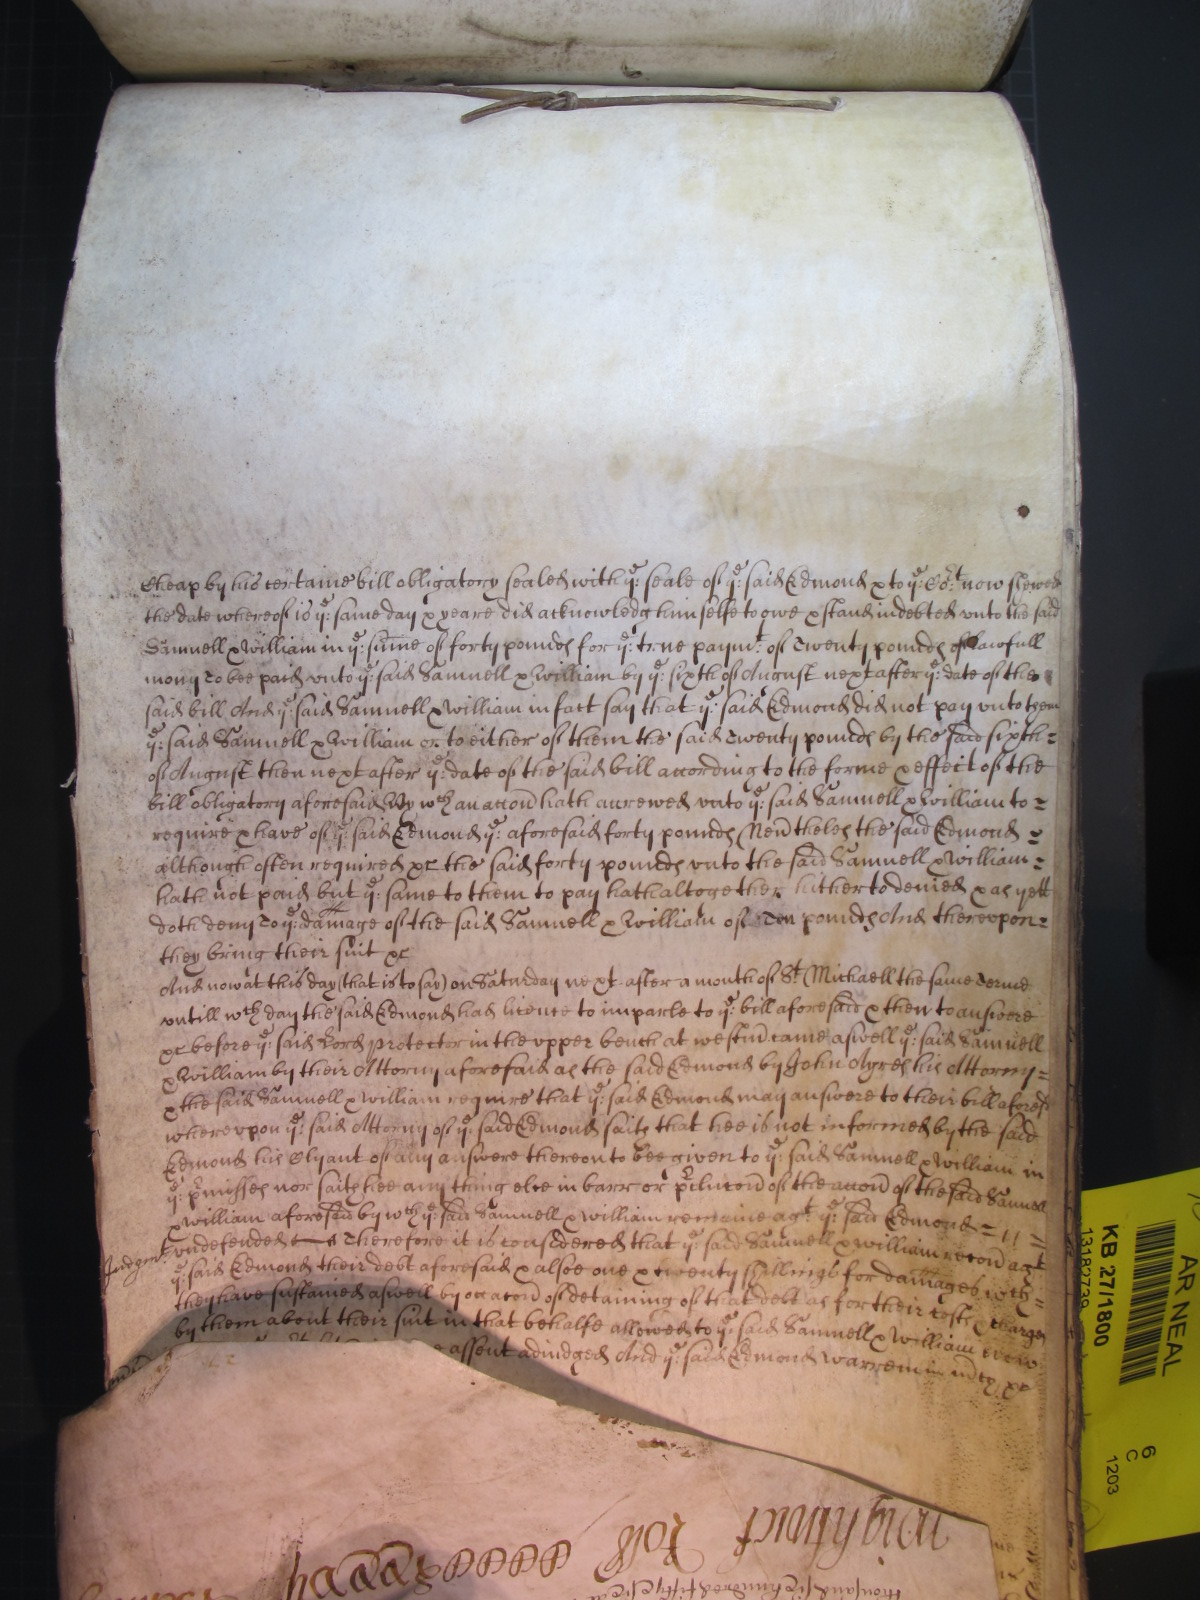 Cheap by his certaine bill obligatory sealed with ye seale of ye said Edmond & to ye Cort now shewed
the date whereof is ye same day & yeare did acknowledg himselfe to owe & stand indebted unto the said
Samuell & William in ye sume of forty pounds for ye true paymt of Twenty pounds of lawfull
mony To bee paid unto ye said Samuell & William by ye sixth of August next after ye date of the
said bill And ye said Samuell & William in fact say that ye said Edmond did not pay unto them
ye said Samuell & William or to either of them the said Twenty pounds by the said sixth=
of August then next after ye date of the said bill according to the forme & effect of the
bill obligatory aforesaid By wch an accon hath accrewed unto ye said Samuell & William to=
require & have of ye said Edmond ye aforesaid forty pounds Nevertheles the said Edmond=
although often required &c the said forty pounds unto the said Samuell & William=
hath not paid but ye same to them to pay hath altogether hitherto denied & as yett
doth deny To ye damage of the said Samuell & William of Ten pounds And thereupon=
they bring their suit &c
And now at this day (that is to say) on Saturday next after a month of St Michaell the same Terme
untill wch day the said Edmond had licence to imparle to ye bill aforesaid & then to answere
&c before ye said Lord Protector in the upper bench at westmr came aswell ye said Samuell
& William by their Attorny aforesaid as the said Edmond by John Ayres his Attorny=
& the said Samuell & William require that ye said Edmond may answere to their bill aforesd
whereupon ye said Attorny of ye said Edmond saith that hee is not informed by the said
Edmond his Clyant of any answere thereon to bee given to ye said Samuell & William in
ye pmisses nor saith hee any thing else in barr or pclucon of the accon of the said Samuell
& William aforesaid by wch ye said Samuell & William remaine agt ye said Edmond=
Judgmt undefended Therefore it is considered that ye said Samuell & William recovr agt
ye said Edmond their debt aforesaid & alsoe one & twenty shillings for damages wch=
they have sustained aswell by occacon of detaining of that debt as for their costs & charges
by them about their suit in that behalfe allowed to ye said Samuell & William
assent adiudged And ye said Edmond &c
KB 27/1800
13182739
AR NEAL
6
C
1203